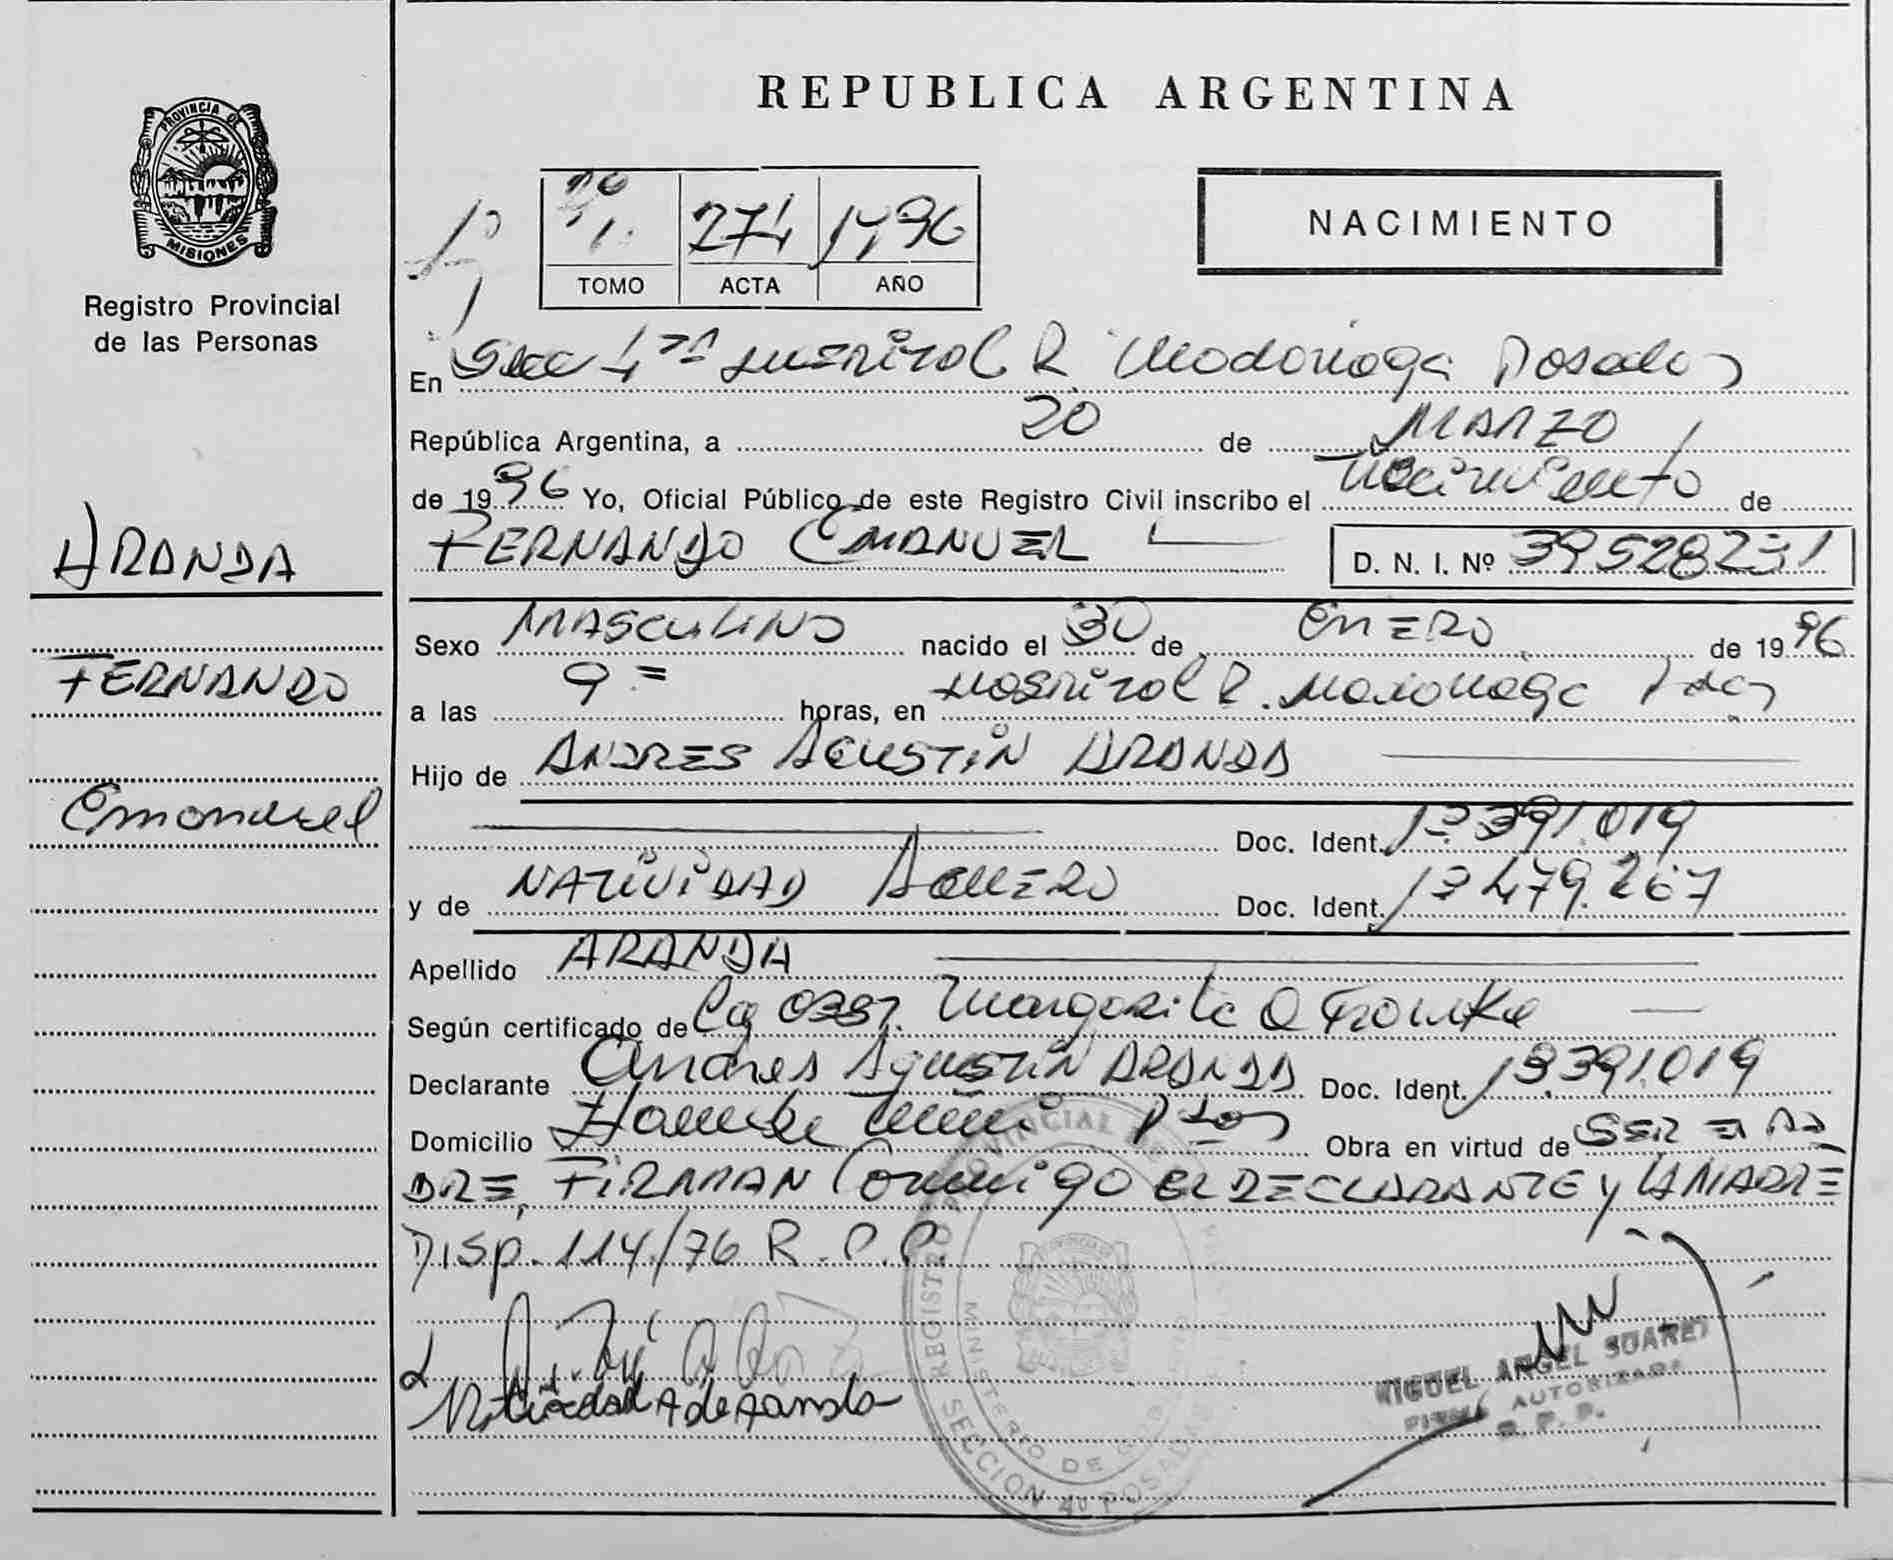 REPUBLICA ARGENTINA
PROVINCIA DE
MISIONES
Registro Provincial
de las Personas
NACIMIENTO
274 1996
TOMO ACTA AÑO
En Secc 4ta Hospital R. Madariaga Posadas
República Argentina, a 20 de MARZO
de 1996 Yo, Oficial Público de este Registro Civil inscribo el Nacimiento de
FERNANDO EMANUEL D. N. I. Nº 39528231
ARANDA
FERNANDO
Emanuel
Sexo MASCULINO nacido el 30 de ENERO de 1996
a las 9 horas, en Hospital R. Madariaga Pdas
Hijo de ANDRES AGUSTIN ARANDA
Doc. Ident. 13.391.019
y de NATIVIDAD AGUERO Doc. Ident. 13.479.267
Apellido ARANDA
Según certificado de la Obst. Margarita Q
Declarante Andres Agustin ARANDA Doc. Ident. 13.391.019
Domicilio Obra en virtud de SER EL PA
DRE, FIRMAN Conmigo EL DECLARANTE Y LA MADRE
DISP. 114/76 R.P.P.
Natividad A de Aranda
MIGUEL ANGEL SUAREZ
FIRMA AUTORIZADA
R. P. P.
REGISTRO PROVINCIAL DE
MINISTERIO DE
SECCION 4ª POSADAS